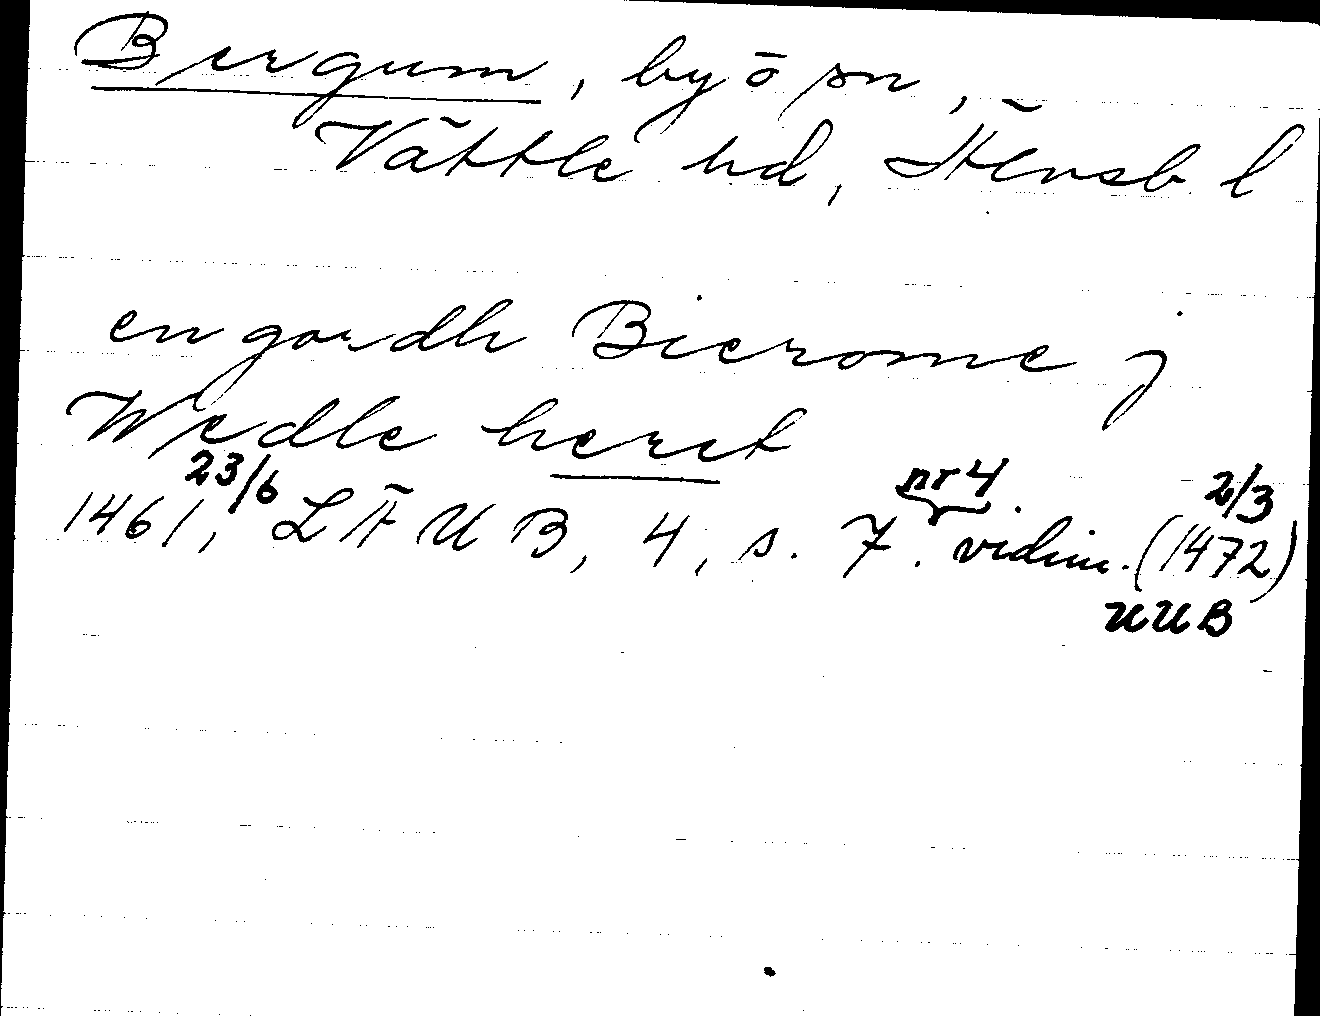 Bergum, by o sn,
Vättle hd, Älvsb l
en gardh Bierome j
Wedle heret
23/6 nr 4. 2/3
1461, LÄUB, 4, s. 7. vidim. (1472)
UUB